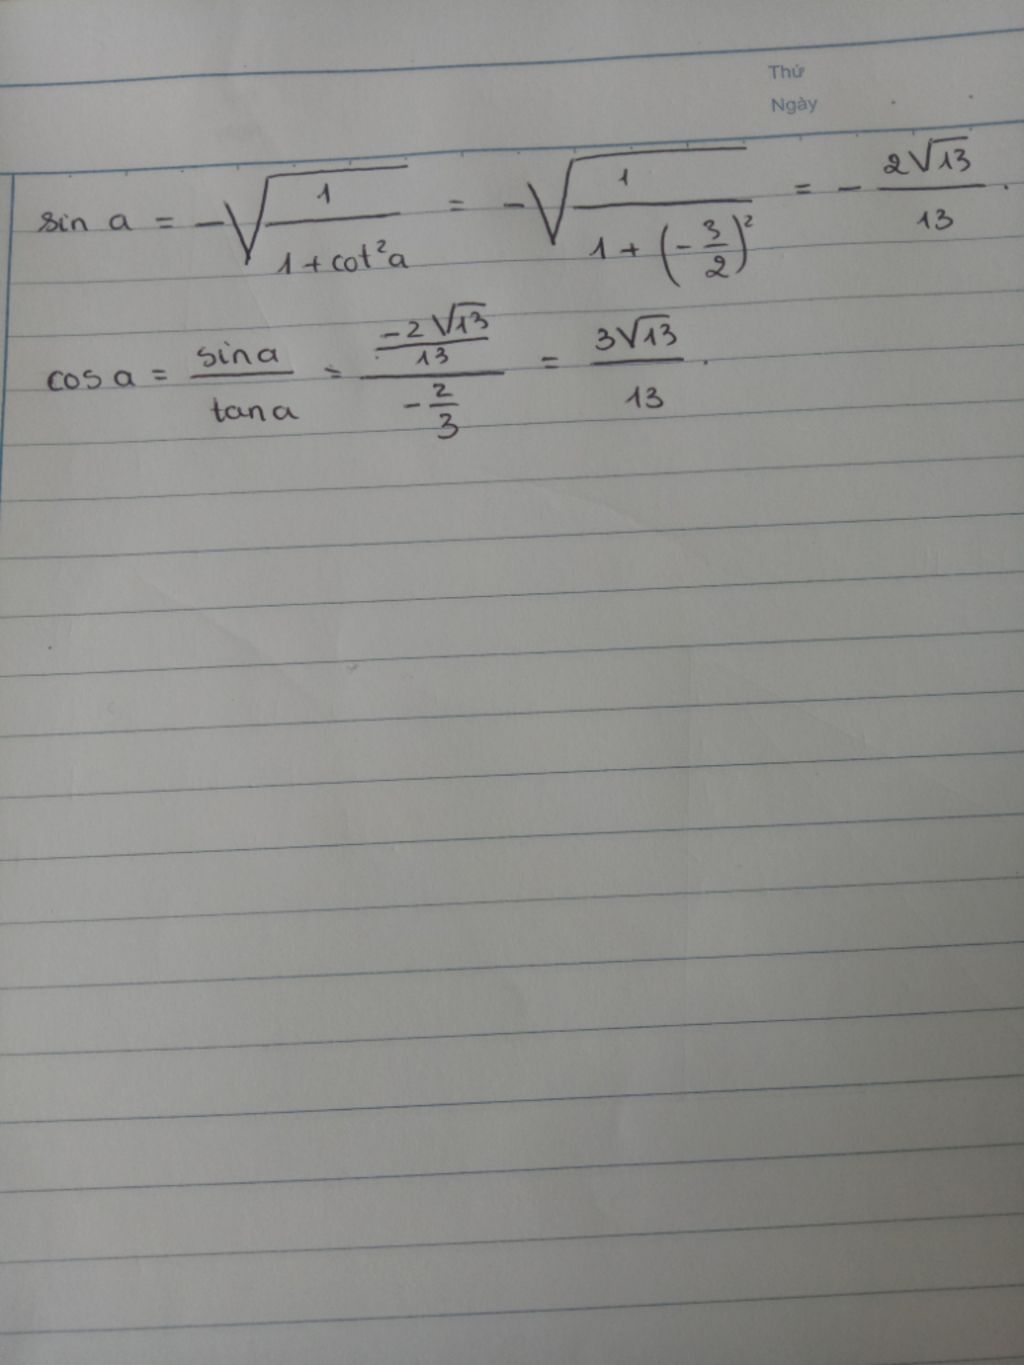 Thứ
Ngày
sin a = -√(1/(1+cot²a)) = -√(1/(1+(-3/2)²)) = -2√13/13.
cos a = sin a/tan a = (-2√13/13)/(-2/3) = 3√13/13.